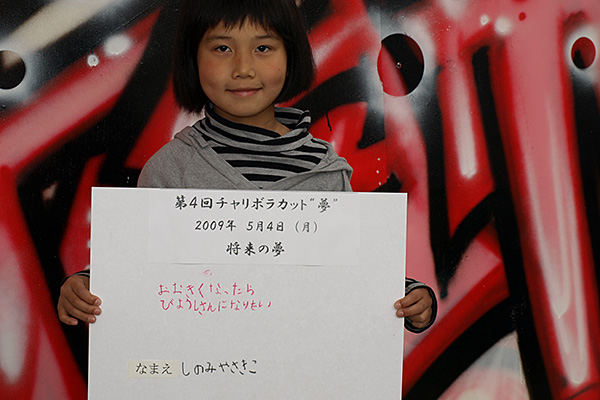 第4回チャリボラカット"夢"
2009年 5月4日 (月)
将来の夢
おおきくなったら
びようしさんになりたい
なまえ しのみやさきこ